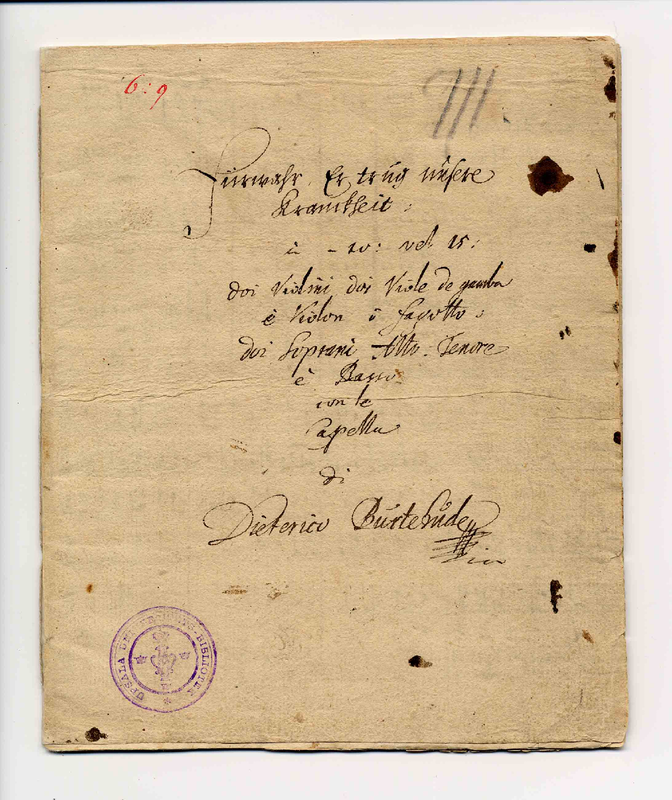 6:9
Fürwahr Er trüg unsere
Kranckheit:
à - 10: vel 15:
doi Violini doi Viole de gamba
è Violon ò fagotto:
doi Soprani Alto Tenore
è Basso
con le
Capella
di
Dieterico Buxtehüde
UPSALA UNIVERSITETS-BIBLIOTEK